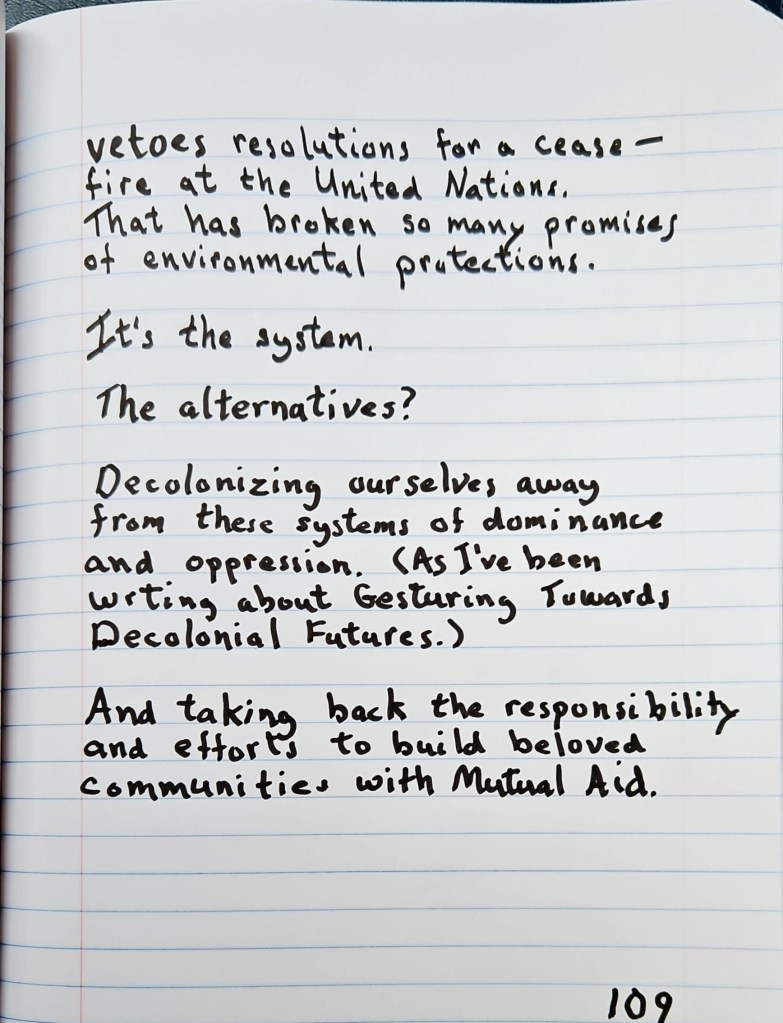 vetoes resolutions for a cease-
fire at the United Nations.
That has broken so many promises
of environmental protections.
It's the system.
The alternatives?
Decolonizing ourselves away
from these systems of dominance
and oppression. (As I've been
wrting about Gesturing Towards
Decolonial Futures.)
And taking back the responsibility
and efforts to build beloved
communities with Mutual Aid.
109